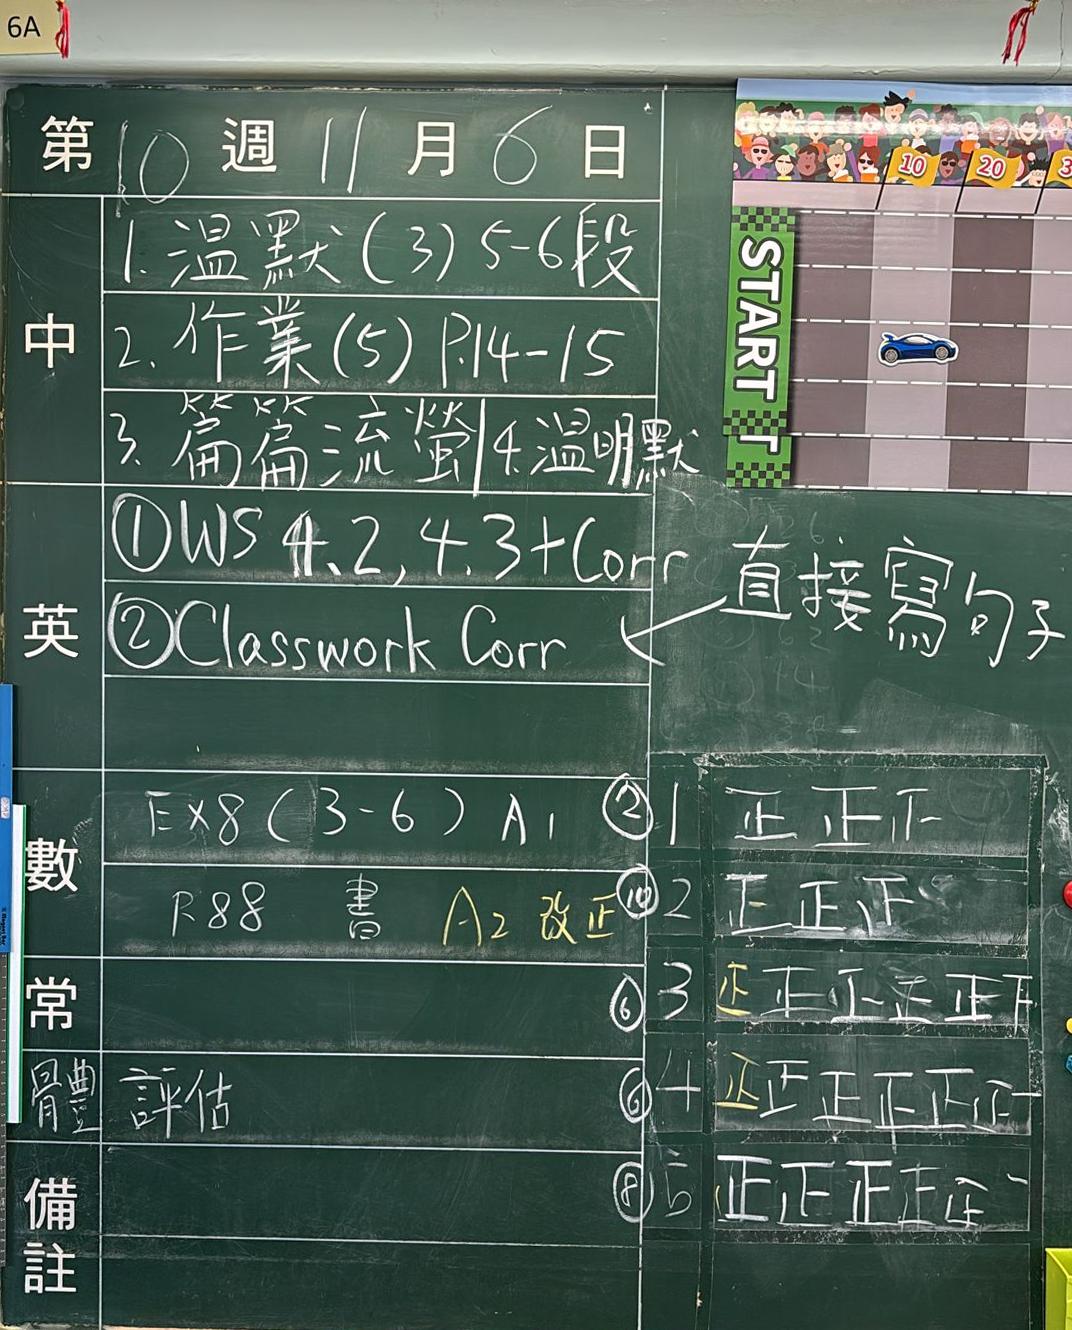 6A
第10週11月6日
10 20 3
START
T
中
1. 温默(3) 5-6段
2. 作業(5) P.14-15
3. 篇篇流螢|4.温明默
英
①WS 4.2, 4.3+Corr
②Classwork Corr
直接寫句子
數
EX8 (3-6) A1
P.88 書 A2 改正
常
體 評估
備註
② 1 正正正
⑩ 2 正正正
⑥ 3 正正正正正正
⑥ 4 正正正正正正
⑧ 5 正正正正正